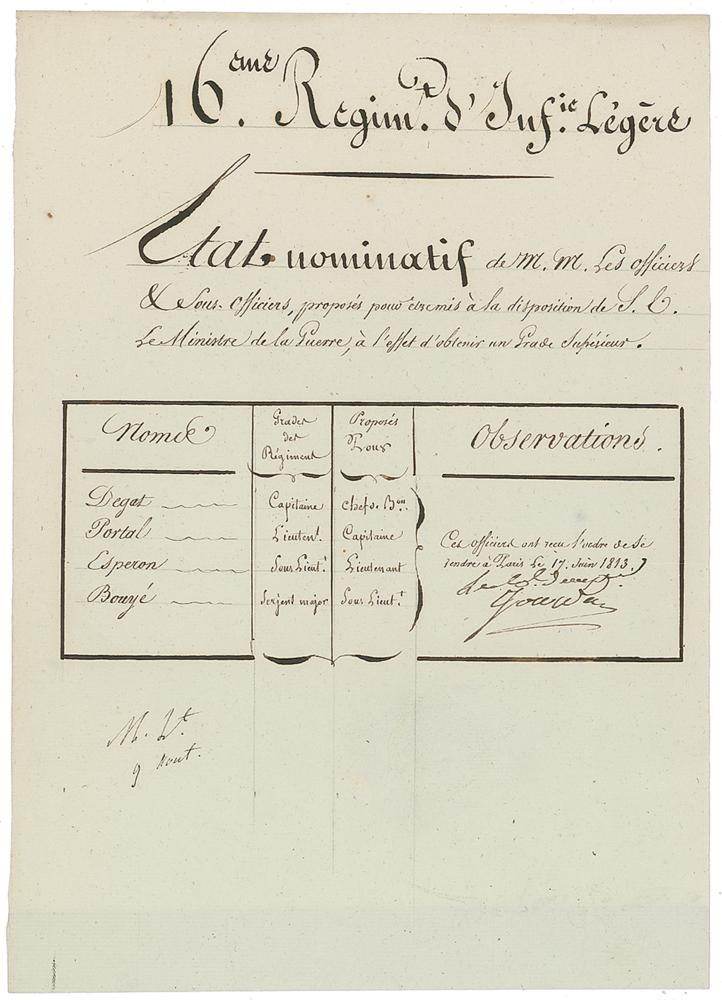 16.eme Regim.t d'Inf.ie Légère
Etat nominatif de M. M. Les officiers
& Sous-Officiers, proposés pour être mis à la disposition de S. E.
Le Ministre de la Guerre, à l'effet d'obtenir un Grade Supérieur.
Noms Grades des Régiment Proposés Pour Observations.
Degat Capitaine Chef de B.on
Portal Lieuten.t Capitaine
Esperon Sous Lieut.t Lieutenant
Bouyé Serjent major Sous Lieut.t
Ces officiers ont recu l'ordre de se
rendre à Paris Le 17. Juin 1813.
Jourdan
9 Aout.